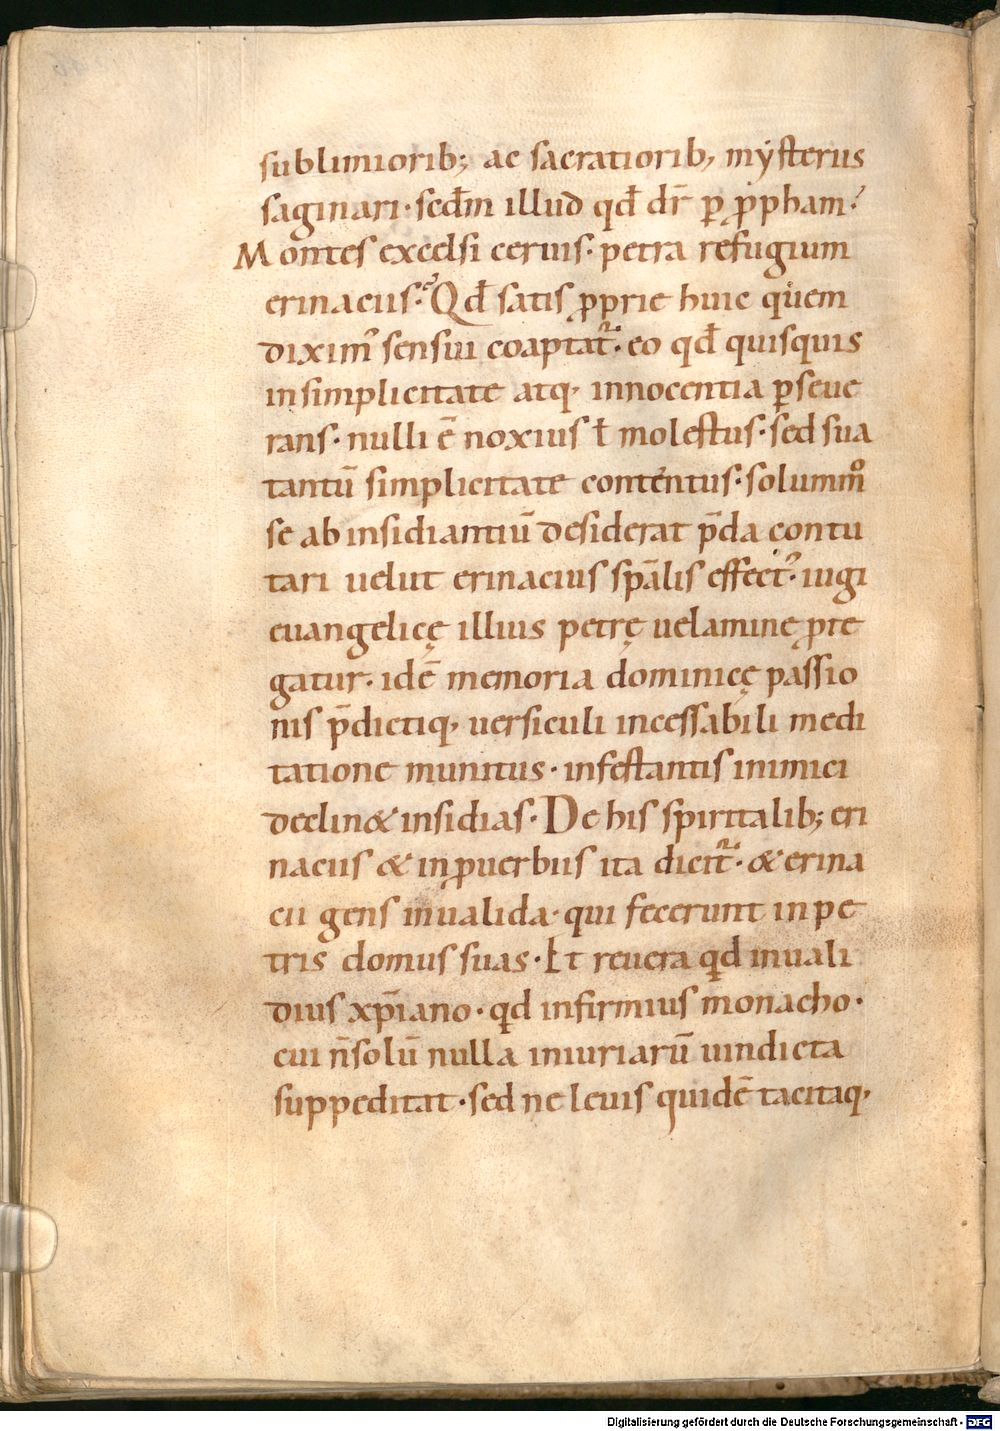 sublimiorib; ac sacratiorib; mẏsteriis
saginari· secdm̄ illud qđ dr̄ p̱ ꝓpham·
Montes excelsi ceruis· petra refugium
erinaciis· Qđ satis ꝓprie huic quem
diximꝰ sensui coaptat᷑· eo qđ quisquis
in simplicitate atq; innocentia ꝑseue
rans· nulli ē noxius ł molestus· sed sua
tantū simplicitate contentus· solummͦ
se ab insidiantiū desiderat p̄da contu
tari uelut erinacius sp̄alis effectꝰ· iugi
euangelicę illius petrę uelamine ꝓte
gatur· idē memoria dominicę passio
nis p̄dictiq; uersiculi incessabili medi
tatione munitus· infestantis inimici
declin& insidias· De his spiritalib; eri
naciis & in ꝓuerbiis ita dicit᷑· & erina
cii gens inualida· qui fecerunt in pe
tris domus suas· Et reuera qd inuali
dius xp̄iano· qd infirmius monacho·
cui n̄ solū nulla iniuriarū uindicta
suppeditat· sed ne leuis quidē tacitaq;
Digitalisierung gefördert durch die Deutsche Forschungsgemeinschaft - DFG